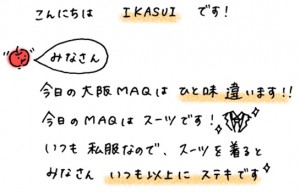 こんにちは IKASUI です!
みなさん
今日の大阪MAQは ひと味 違います!!
今日のMAQは スーツです!
いつも 私服なので、スーツを着ると
みなさん いつも以上に ステキです